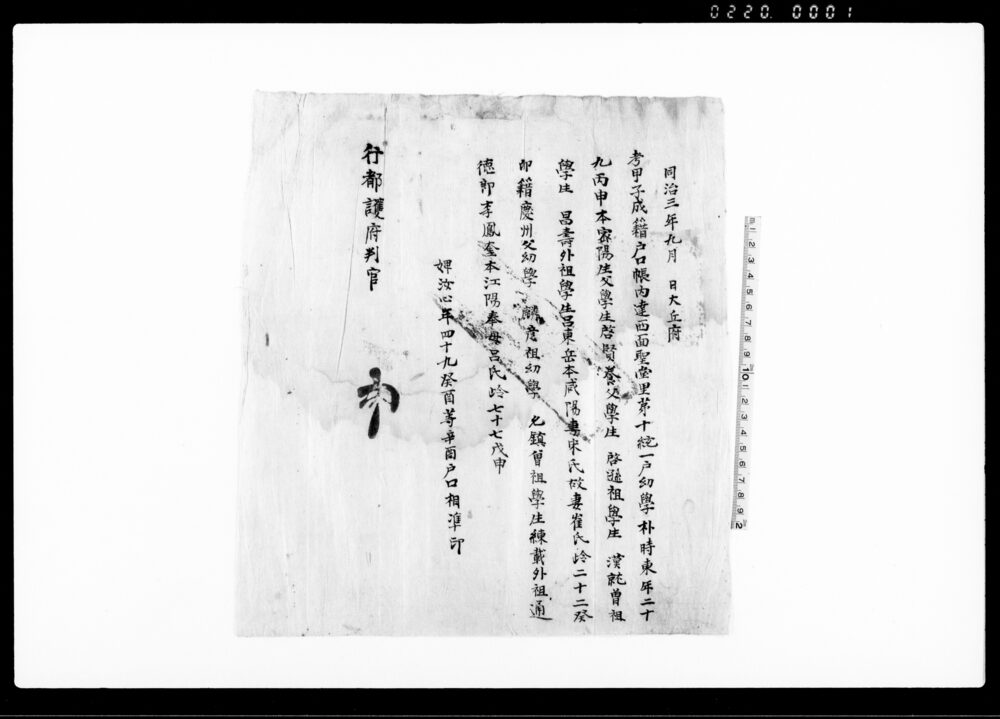 0220. 0001
同治三年九月 日大丘府
考甲子成籍戶口帳內達西面聖堂里第十統一戶幼學朴時東年二十
九丙申本密陽生父學生啓賢養父學生 啓 祖學生 漢 曾祖
學生 昌壽外祖學生呂東岳本咸陽妻宋氏故妻崔氏齡二十二癸
卯籍慶州父幼學 麟彦祖幼學 允鎭曾祖學生練載外祖通
德郎李鳳奎本江陽奉母呂氏齡七十七戊申
婢汝心年四十九癸酉等辛酉戶口相準印
行都護府判官